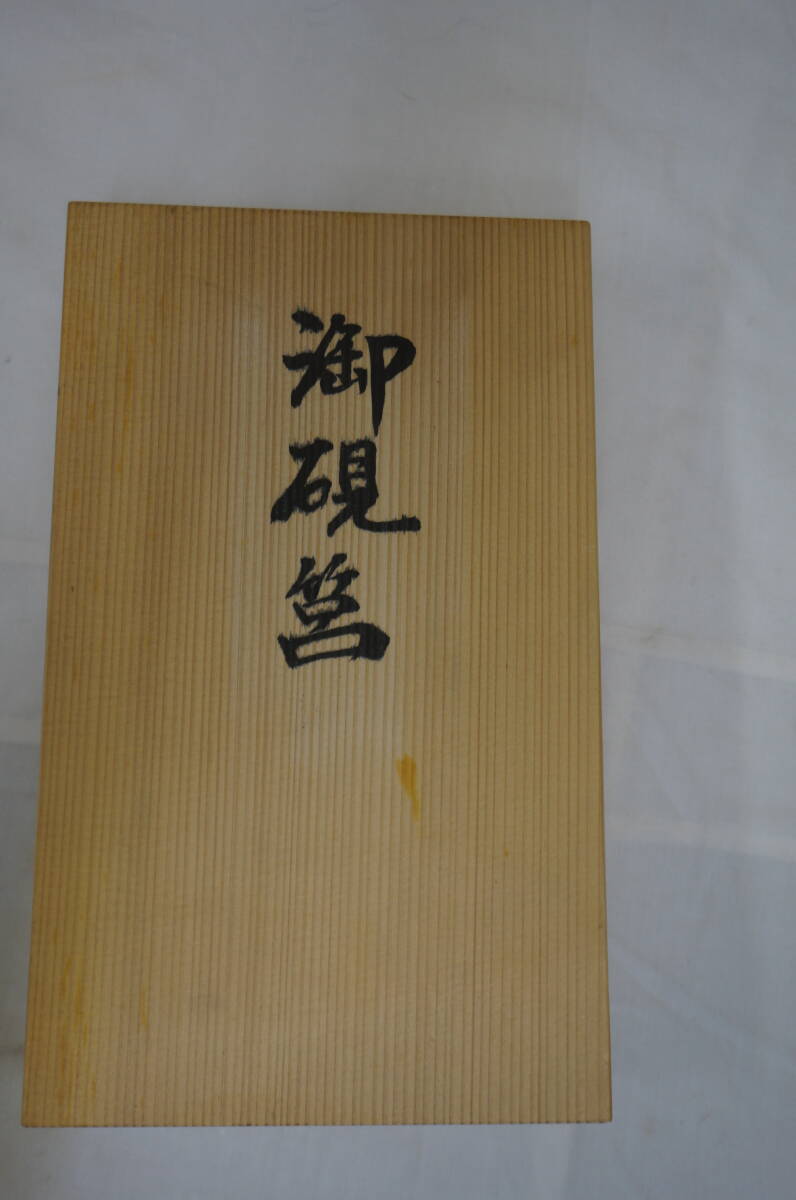 御硯筥